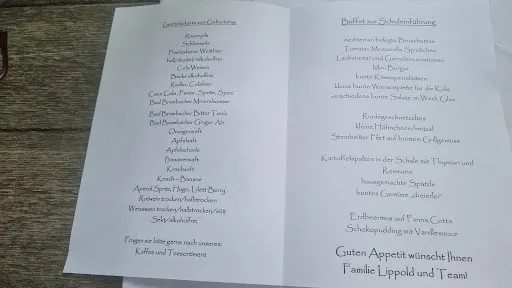 Getränkekarte zum Geburtstag
Rosenpils
Schlosspils
Franziskaner Weißbier
hell/dunkel/alkoholfrei
Cola Weizen
Becks alkoholfrei
Radler, Colabier
Coca Cola, Fanta, Sprite, Spezi
Bad Brambacher Mineralwasser
Bad Brambacher Bitter Tonic
Bad Brambacher Ginger Ale
Orangensaft
Apfelsaft
Apfelschorle
Bananensaft
Kirschsaft
Kirsch – Banane
Aperol Spritz, Hugo, Lillet Berry
Rotwein trocken/halbtrocken
Weisswein trocken/halbtrocken/süß
Sekt/alkoholfrei
Fragen sie bitte gerne nach unserem
Kaffee und Teesortiment
Buffet zur Schuleinführung
mediterran belegte Bruschettas
Tomaten Mozzarella Spießchen
Lachstatar und Garnelenvariationen
Mini Burger
bunte Käsespezialitäten
kleine bunte Wienerspieße für die Kids
verschiedene bunte Salate in Weck Glas
Rindegeschnetzeltes
kleine Hähnchenschnitzel
Steinbeißer Filet auf buntem Grillgemüse
Kartoffelspalten in der Schale mit Thymian und
Rosmarin
hausgemachte Spätzle
buntes Gemüse „dreierlei“
Erdbeermus auf Panna Cotta
Schokopudding mit Vanillesauce
Guten Appetit wünscht Ihnen
Familie Lippold und Team!